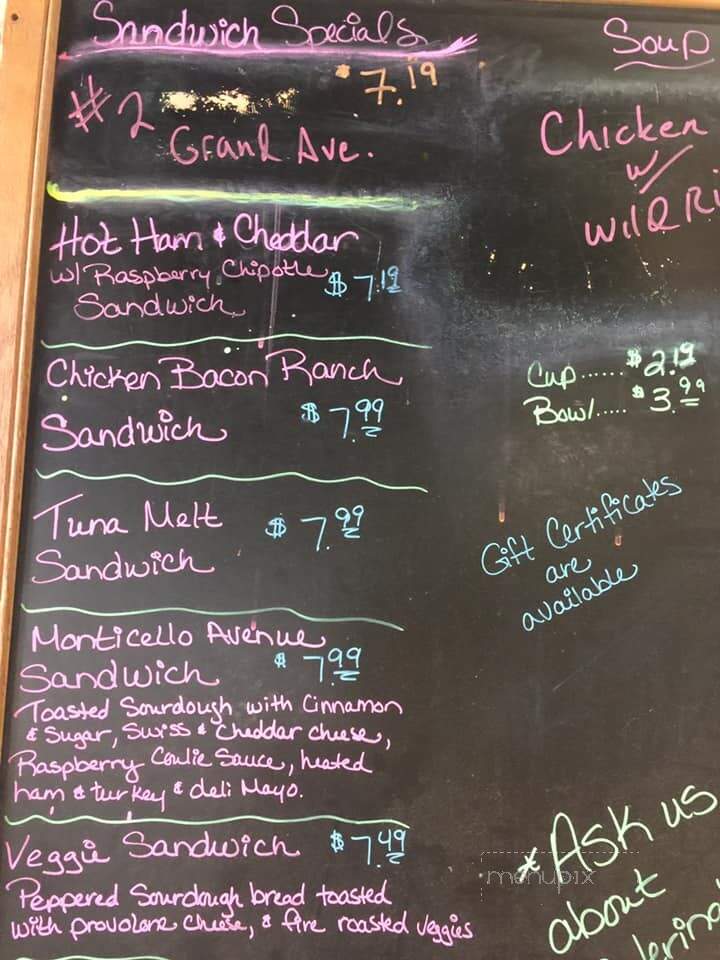 Sandwich Specials
#2 $7.19
Grand Ave.
Hot Ham & Cheddar
w/ Raspberry Chipotle $7.19
Sandwich
Chicken Bacon Ranch
Sandwich $7.99
Tuna Melt $7.99
Sandwich
Monticello Avenue
Sandwich $7.99
Toasted Sourdough with Cinnamon
& Sugar, Swiss & Cheddar cheese,
Raspberry Coulie Sauce, heated
ham & turkey & deli Mayo.
Veggie Sandwich $7.49
Peppered Sourdough bread toasted
with provolone cheese, & fire roasted veggies
Soup
Chicken
w/
Wild Ri
Cup...... $2.19
Bowl..... $3.99
Gift Certificates
are
available
* Ask us
about
menupix